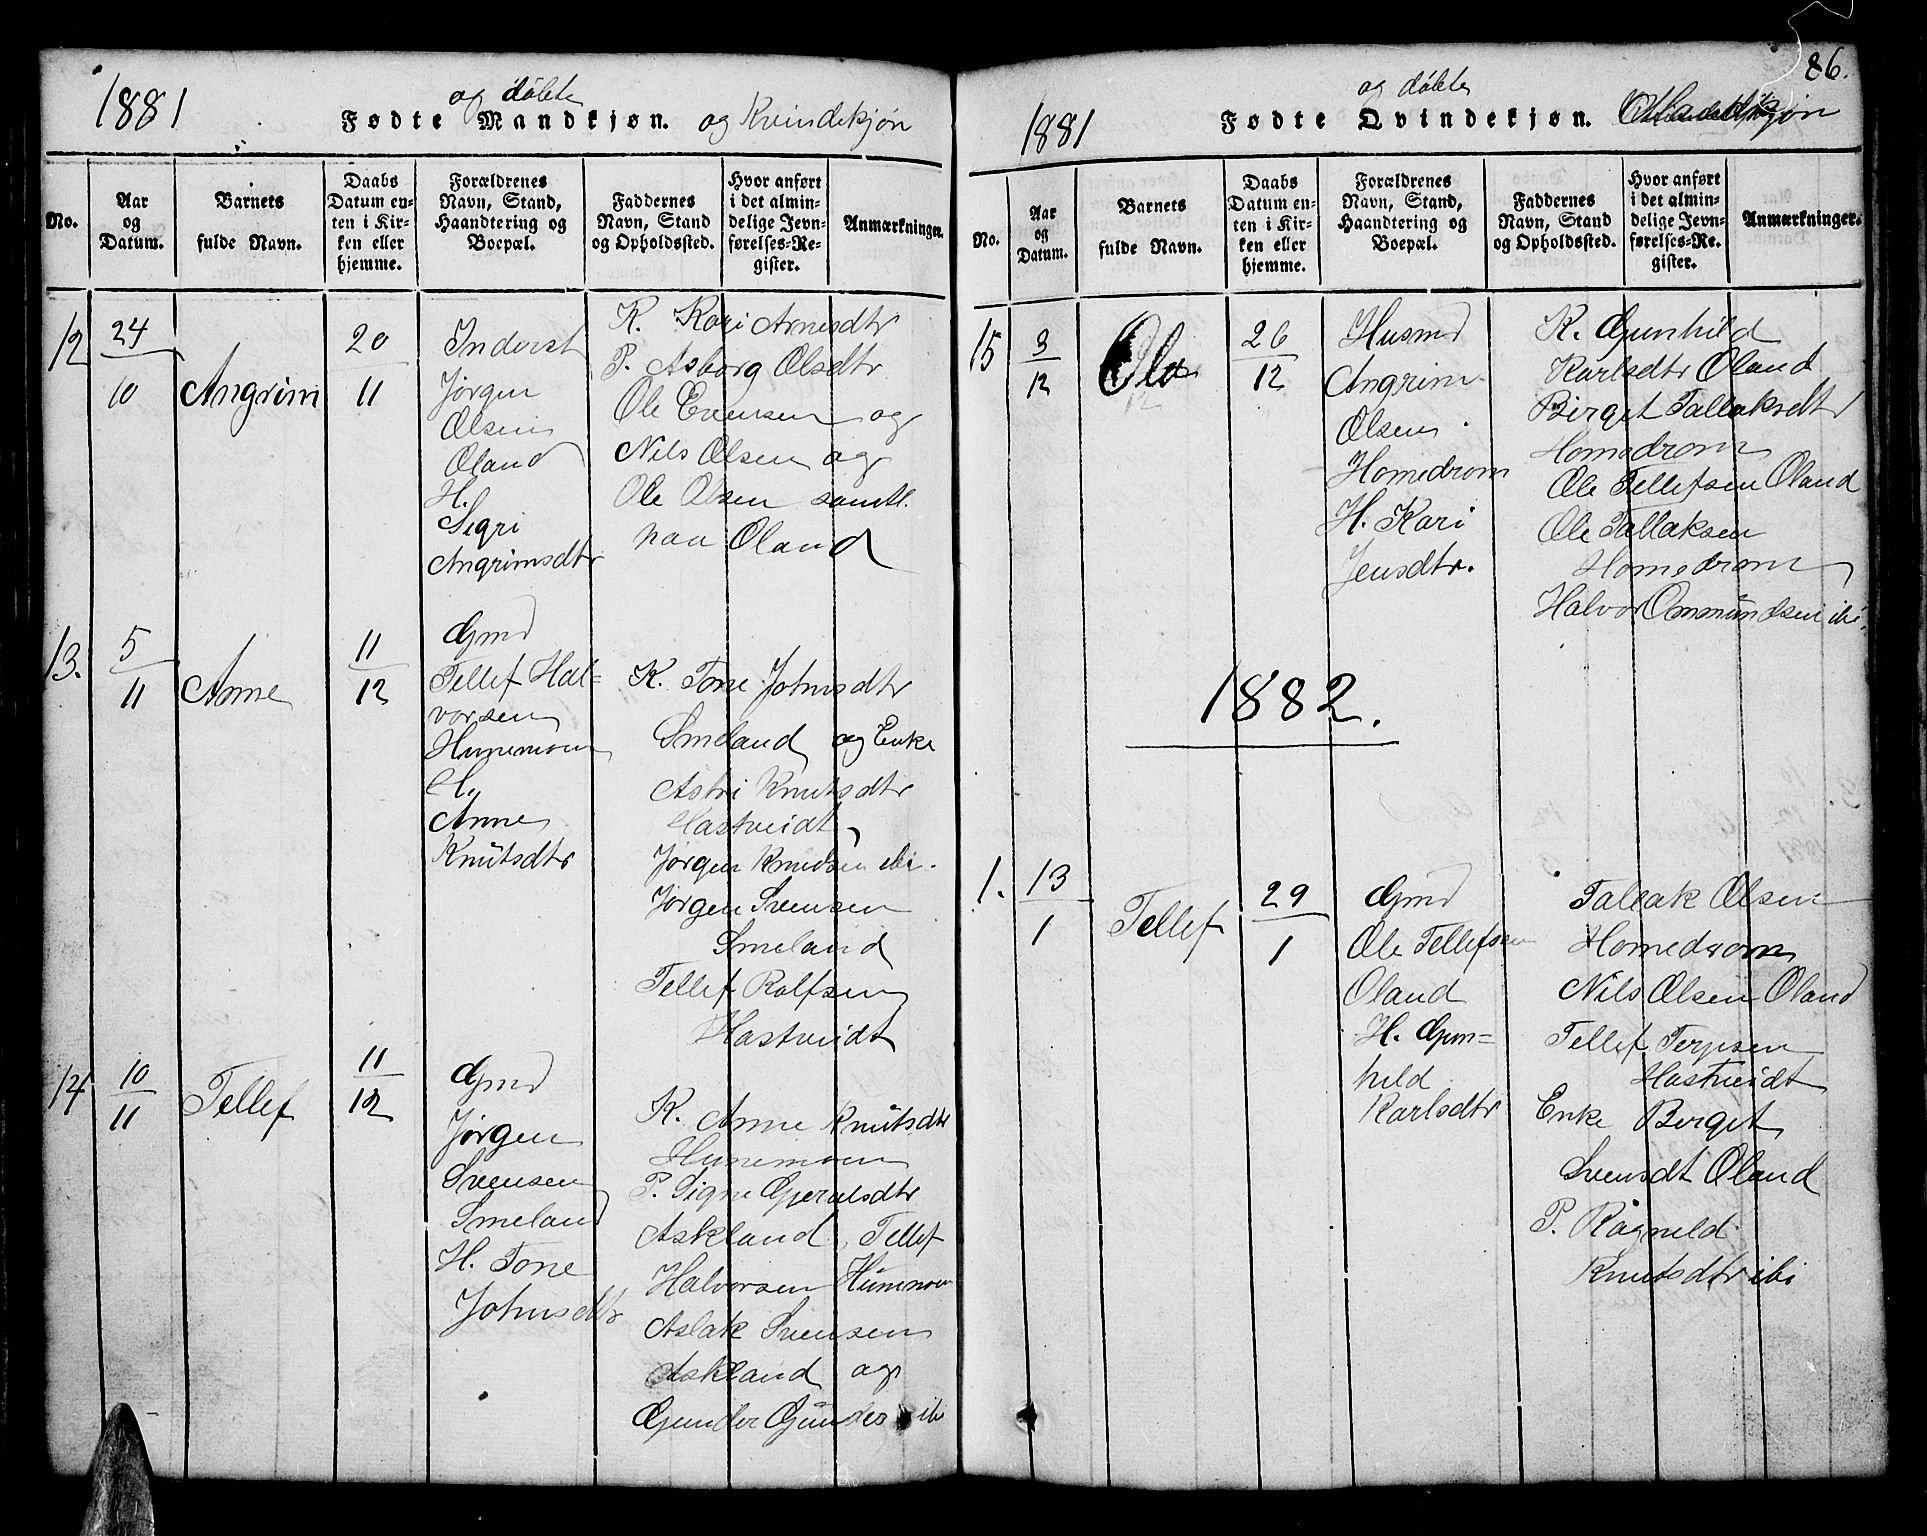 1881
og døbte
Fødte Mandkjøn. og Kvindekjøn
No.
Aar og Datum.
Barnets fulde Navn.
Daabs Datum enten i Kirken eller hjemme.
Forældrenes Navn, Stand, Haandtering og Boepæl.
Faddernes Navn, Stand og Opholdssted.
Hvor anført i det almindelige Jevnførelses-Register.
Anmærkninger.
12
24
10
Angrim
20
11
Inderst
Jørgen
Olsen
Oland
H.
Sigri
Angrimsdtr
K. Kari Arnesdtr
P. Asborg Olsdtr
Ole Evensen og
Nils Olsen og
Ole Olsen samtl.
paa Oland
13.
5
11
Anne
11
12
Gmd
Tellef Hal=
vorsen
Hunemoen
H.
Anne
Knutsdtr
K. Tone Johnsdtr
Smeland og Enke
Astri Knutsdtr
Hastveidt
Jørgen Knudsen ibi.
Jørgen Svensen
Smeland
Tellef Rolfsen
Hastveidt
14
10
11
Tellef
11
12
Gmd
Jørgen
Svensen
Smeland
H. Tone
Johnsdtr
K. Anne Knutsdtr
Hunemoen
P. Signe Gjerulsdtr
Askland, Tellef
Halvorsen Hunemoen
Aslak Svensen
Askland og
Gunder Gunders ib
86.
1881
og døbte
Fødte Qvindekjøn.
No.
Aar og Datum.
Barnets fulde Navn.
Daabs Datum enten i Kirken eller hjemme.
Forældrenes Navn, Stand, Haandtering og Boepæl.
Faddernes Navn, Stand og Opholdssted.
Hvor anført i det almindelige Jevnførelses-Re-gister.
Anmærkninger.
15
3
12
Ole
26
12
Husmd
Angrim
Olsen
Homedrom
H. Kari
Jensdtr.
K. Gunhild
Karlsdtr Oland
Birget Tallaksdtr
Homedrom
Ole Tellefsen Oland
Ole Tallaksen
Homedrom
Halvor Ommundsen ibi.
1882.
1.
13
1
Tellef
29
1
Gmd
Ole Tellefsen
Oland
H. Gun=
hild
Karlsdtr
Tallak Olsen
Homedrom
Nils Olsen Oland
Tellef Terjesen
Hastveidt
Enke Berget
Svensdt Oland
P. Ragnild
Knutsdtr ibi